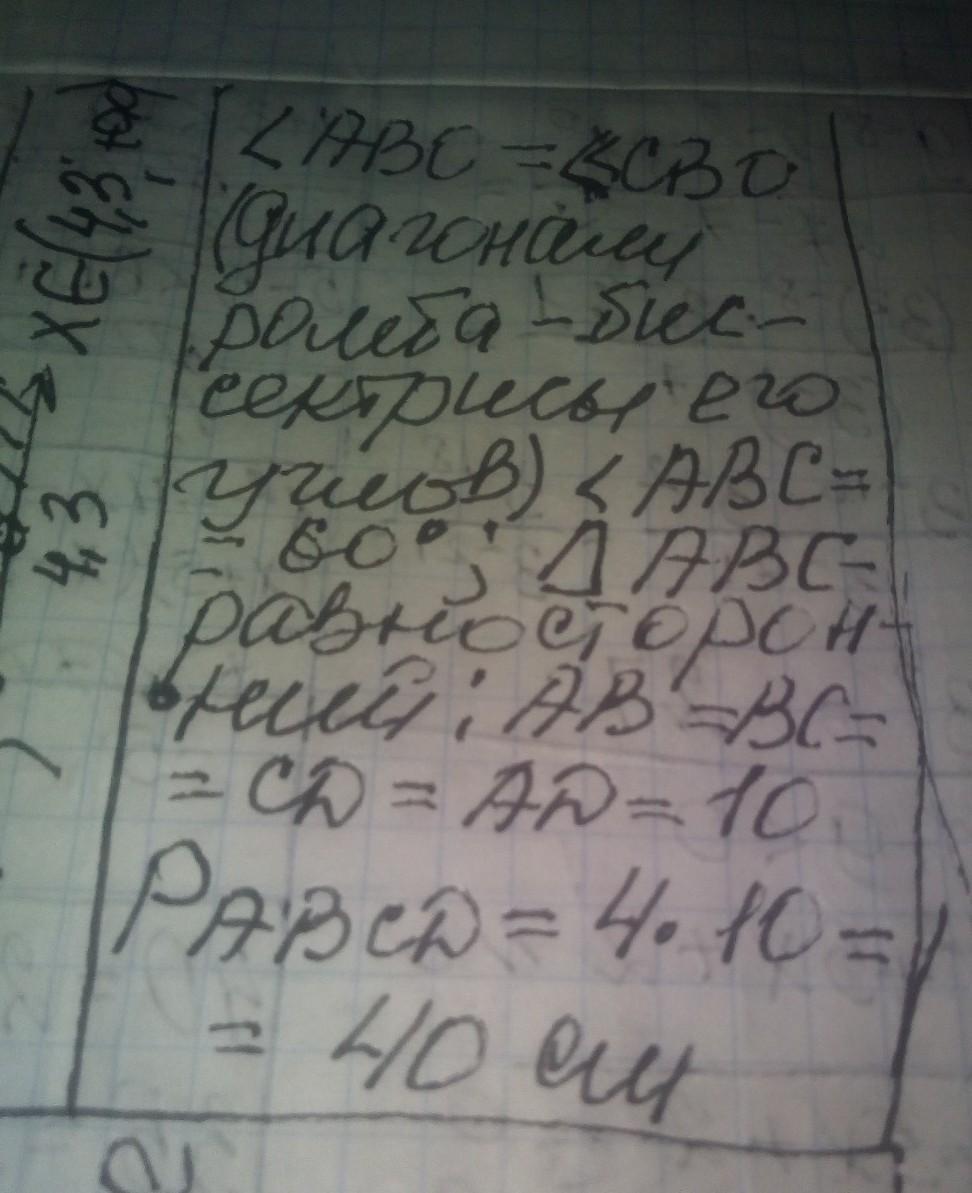 <ABO = <CBO
(диагонали
ромба - бис-
сектрисы его
углов) < ABC =
= 60°; Δ ABC -
равносторон-
ний; AB = BC =
= CD = AD = 10
PABCD = 4 · 10 =
= 40 см
x∈(4,3
4,3